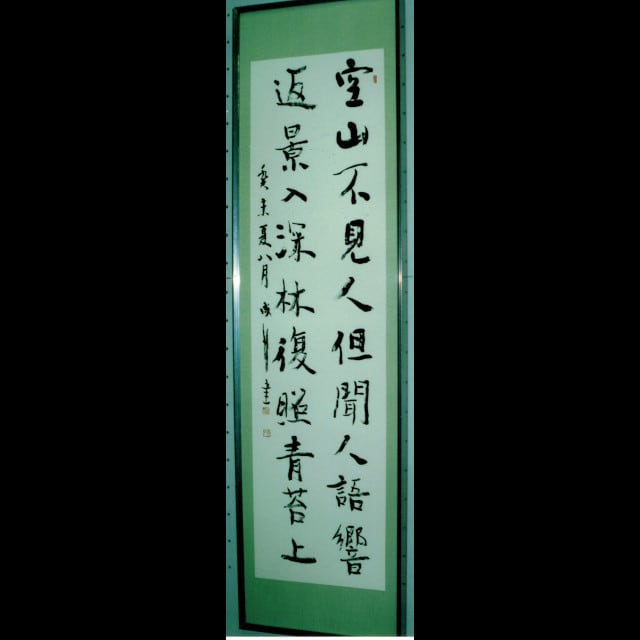 空山不見人但聞人語響
返景入深林復照青苔上
癸未夏八月 書